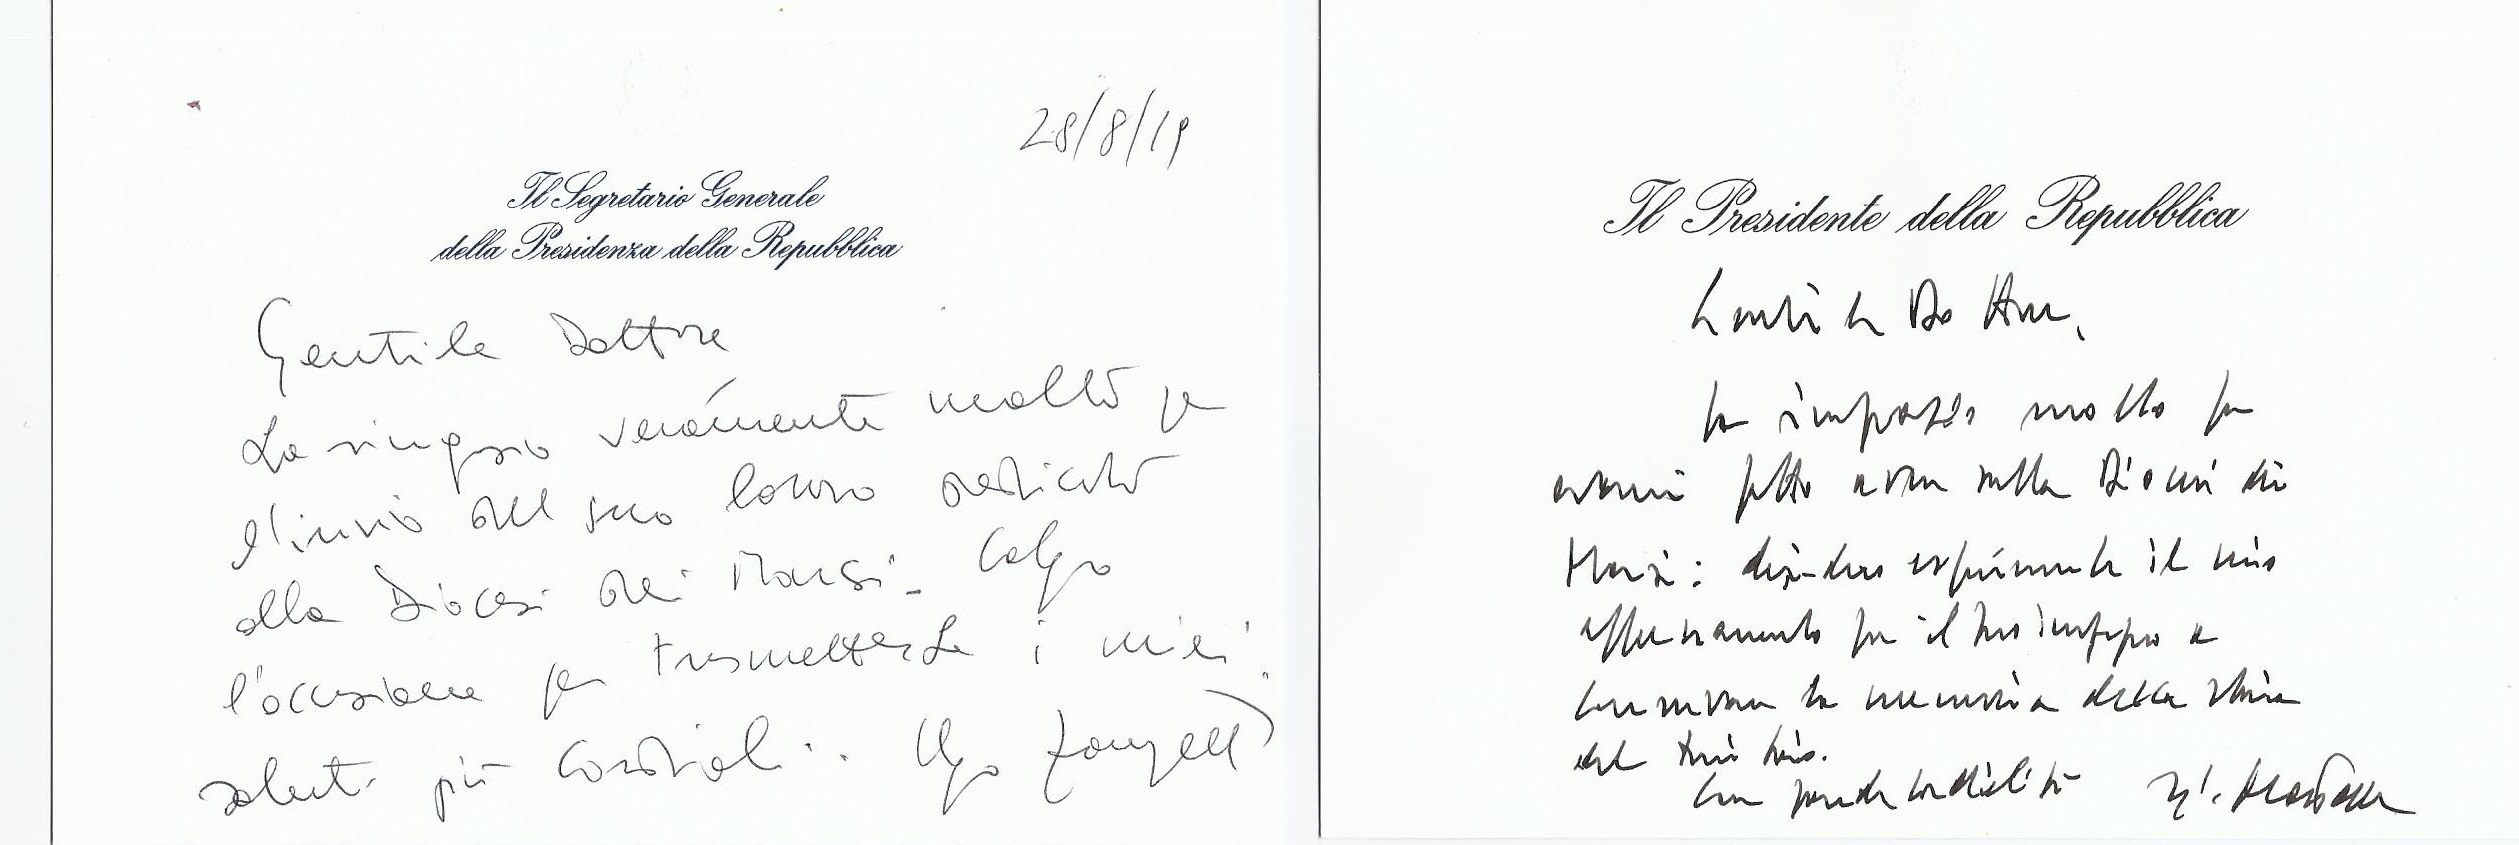 28/8/19
Il Segretario Generale
della Presidenza della Repubblica
Gentile Dottore
La ringrazio veramente molto per
l'invio del suo lavoro dedicato
alla Diocesi dei Marsi. Colgo
l'occasione per trasmetterLe i miei
saluti più cordiali. Ugo Zampetti
Il Presidente della Repubblica
Gentile Dottore,
la ringrazio molto per
avermi fatto avere sulla Diocesi dei
Marsi: desidero esprimerle il mio
apprezzamento per il Suo impegno a
conservare la memoria della storia
del
Con grande cordialità Mattarella